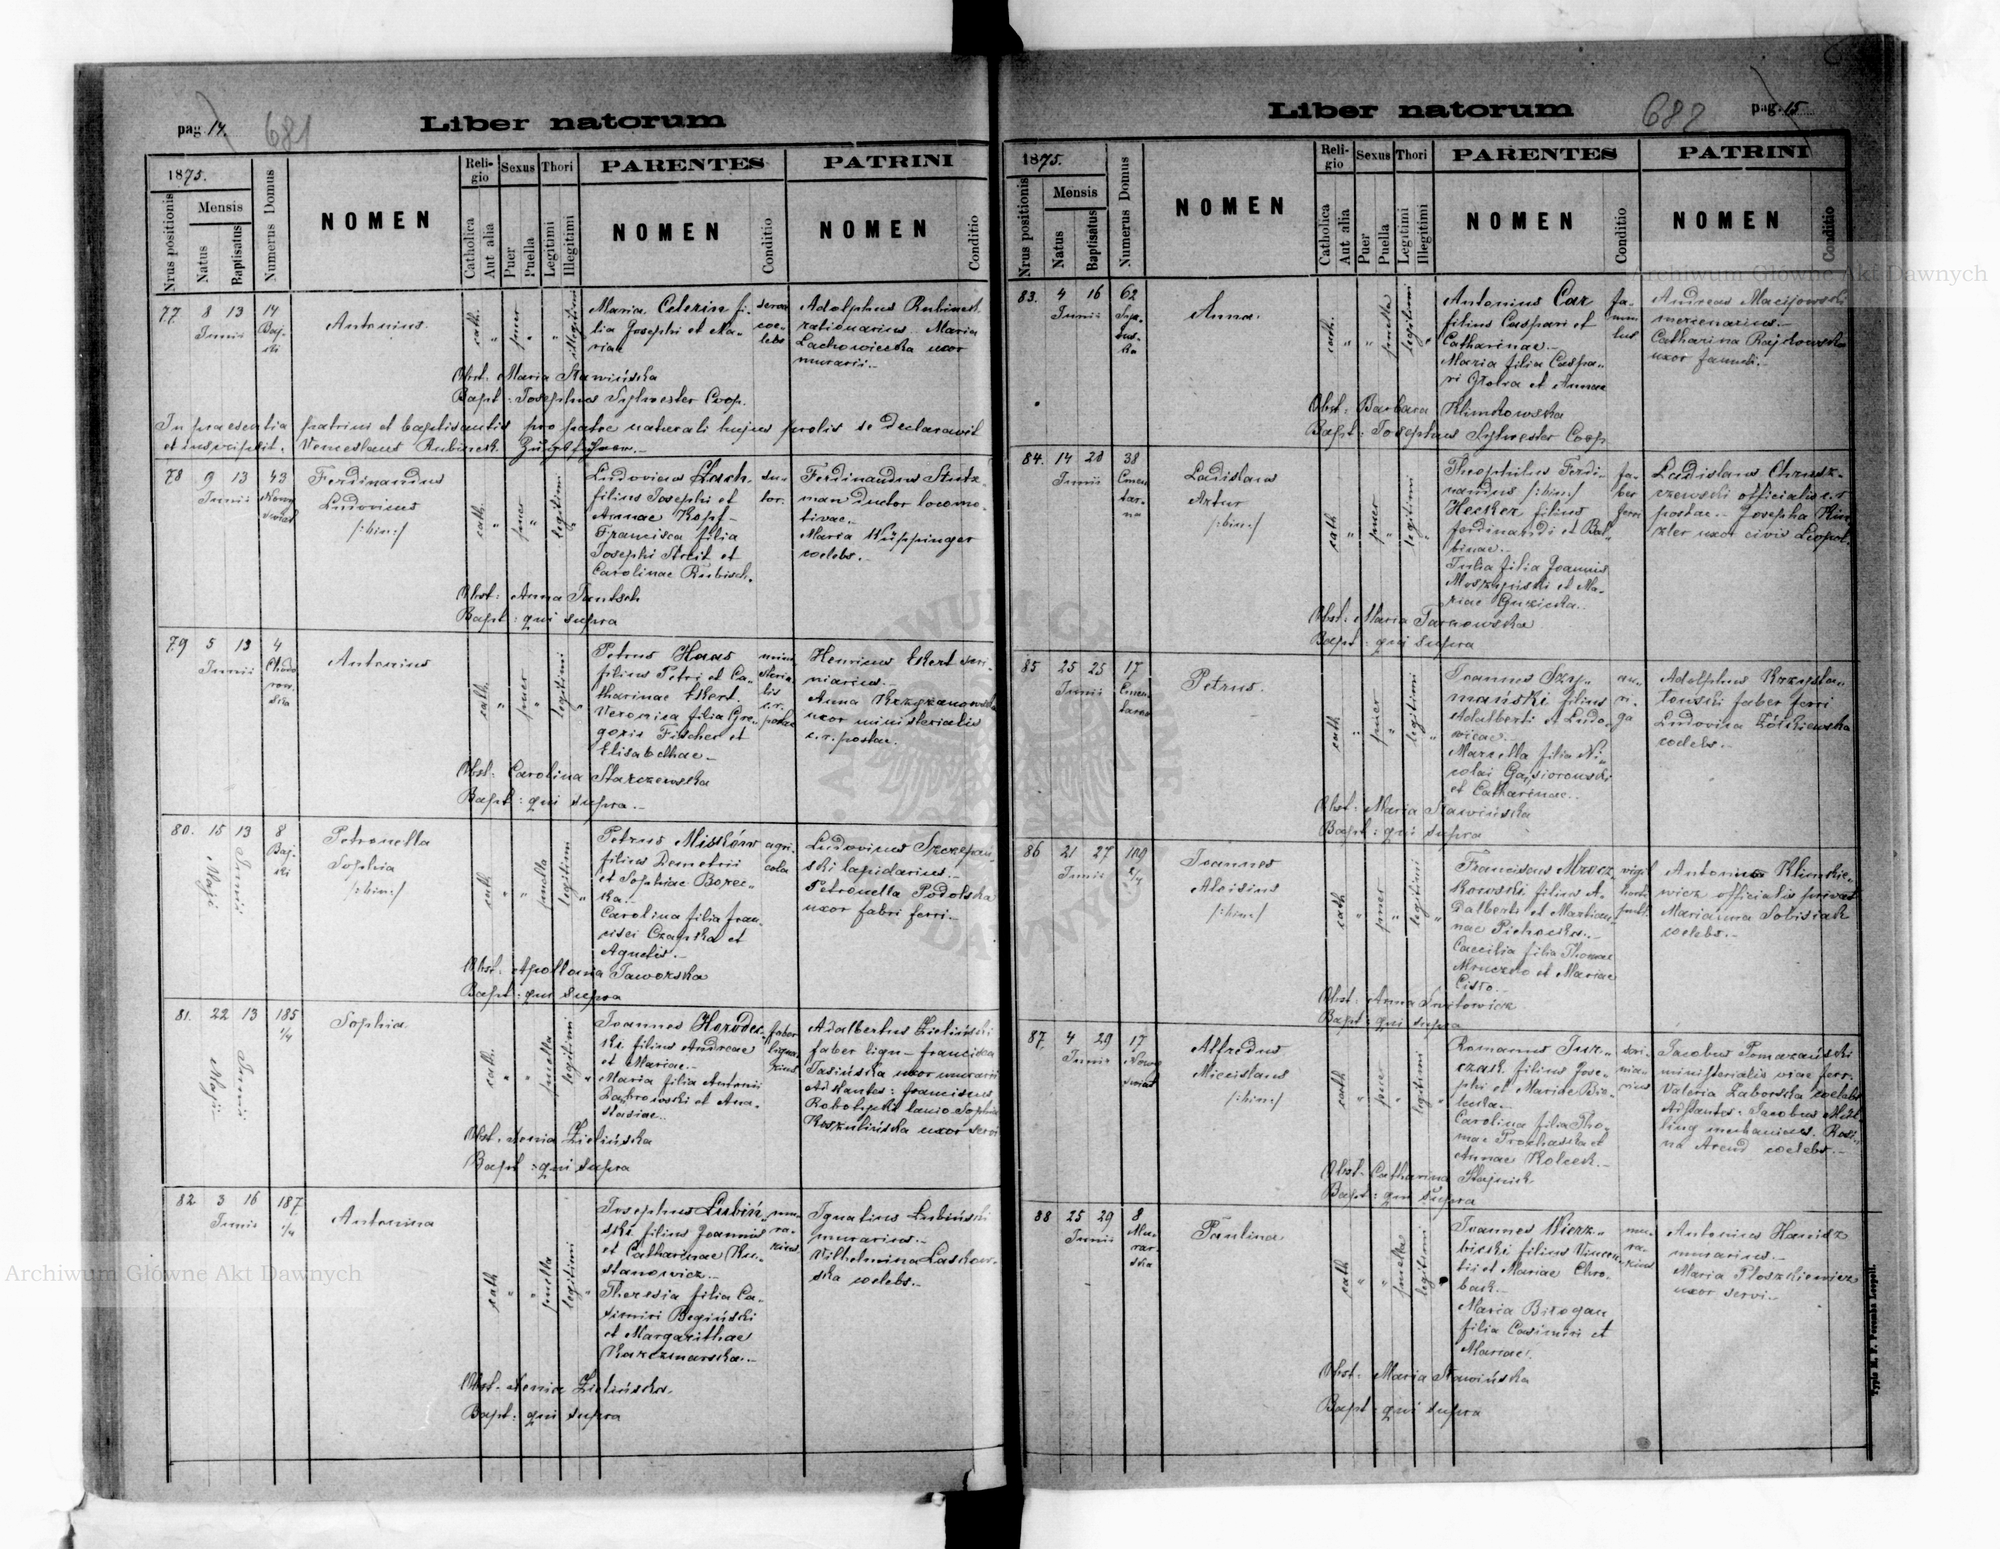 pag. 14.
681
Liber natorum
1875.
Nrus positionis
Mensis
Natus
Baptisatus
Numerus Domus
NOMEN
Religio
Catholica
Aut alia
Sexus
Puer
Puella
Thori
Legitimi
Illegitimi
PARENTES
NOMEN
Conditio
PATRINI
NOMEN
Conditio
77 8 13 14
Junii
Baj-
ki
Antonius.
cath. " puer " " illegitimi
Maria Celerin fi-
lia Josephi et Ma-
riae
serva
coe-
lebs
Adolphus Rubinek
rationarius. Maria
Lachowiecka uxor
murarii.-
Obst. Maria Stawińska
Bapt: Josephus Sylwester Coop.
In praesentia patrini et baptisantis pro patre naturali hujus prolis se declaravit
et inscripsit. Venceslaus Rubinek
78 9 13 43
Junii
Nowy
świat
Ferdinandus
Ludovicus
/:bin:/
cath. " puer " legitimi "
Ludovicus
filius Josephi et
Annae Kopf -
Francisca filia
Josephi Streit et
Carolinae Rubisch.
su-
tor.
Ferdinandus Stutz-
man ductor locomo-
tivae.-
Maria Wüppinger
coelebs.-
Obst: Anna Jantsch
Bapt: qui supra
79 5 13 4
Junii
Chodo
row-
ska
Antonius
cath. " puer " legitimi "
Petrus Haas
filius Petri et Ca-
tharinae Ekert.
Veronica filia Gre-
gorii Fischer et
Elisabethae -
mini
steria-
lis
c.r.
postae
Henricus Ekert scri-
niarius.-
Anna Krzyzanowska
uxor ministerialis
c.r. postae.
Obst: Carolina Starczewska
Bapt: qui supra.-
80. 15 13 8
Maji
Junii
Baj-
ki
Petronella
Sophia
/:bin:/
cath " " puella legitimi "
Petrus Misków
filius Demetrii
et Sophiae Borec-
ka.-
Carolina filia Fran-
cisci Czapska et
Agnetis.-
agri-
cola
Ludovicus Szczepań-
ski lapidarius.-
Petronella Podolska
uxor fabri ferri.-
Obst. Apollonia Jaworska
Bapt: qui supra
81. 22 13 185
1/4
Maji
Junii
Sophia
cath. " " puella legitimi "
Joannes Horodec-
ki filius Andreae
et Mariae.-
Maria filia Antonii
Dąbrowski et Ana-
stasiae.-
faber
ligna-
rius
Adalbertus Zieliński
faber lign - Francisca
Jasińska uxor murarii
Adstantes: Franciscus
lanio Sophia
Koszulińska uxor servi
Obst. Xenia Zielińska
Bapt: qui supra
82 3 16 187
1/4
Junii
Antonina
cath " " puella legitimi "
Josephus Lubiń-
ski filius Joannis
et Catharinae Ku-
stanowicz.-
Theresia filia Ca-
simiri Begiński
et Margarithae
Karczmarska.-
mu-
ra-
rius
Ignatius Lubiński
murarius.-
Vilhelmina Laskow-
ska coelebs.-
Obst. Xenia Zielińska.
Bapt: qui supra
Liber natorum
682
pag. 15
1875.
Nrus positionis
Mensis
Natus
Baptisatus
Numerus Domus
NOMEN
Religio
Catholica
Aut alia
Sexus
Puer
Puella
Thori
Legitimi
Illegitimi
PARENTES
NOMEN
Conditio
PATRINI
NOMEN
Conditio
83. 4 16 62
Junii
Syx-
tus-
ka
Anna.
cath. " " puella legitimi "
Antonius Car
filius Caspari et
Catharinae.-
Maria filia Caspa-
ri et Annae
fa-
mu-
lus
Andreas Macijowski
mercenarius.-
Catharina Rajtowska
uxor famuli.-
Obst: Barbara Klimkowska
Bapt: Josephus Sylwester Coop
84. 14 20 38
Junii
Cmen
tar-
na
Ladislaus
Artur
/:bin:/
cath " puer " legitimi "
Theophilus Ferdi-
nandus /:bin:/
Hecker filius
Ferdinandi et Bal-
binae.-
Julia filia Joannis
Moszyński et Ma-
riae Guzicka.-
fa-
ber
ferri
Ladislaus Chrusz-
czewski officialis c.r
postae.- Josepha Kin-
zler uxor civis Leopol.
Obst: Maria Tarnowska
Bapt: qui supra
85 25 25 17
Junii
Cmen
tarna
Petrus.
cath " puer " legitimi "
Joannes Szy-
mański filius
Adalberti et Ludo-
vicae.-
Marcella filia Ni-
colai Gąsiorowski
et Catharinae.-
au-
ri-
ga
Adolphus Krzyszta-
łowski faber ferri
Ludovica Żółkiewska
coelebs.-
Obst. Maria Stawińska
Bapt: qui supra
86 21 27 109
2/4
Junii
Joannes
Aloisius
/:bin:/
cath " puer " legitimi "
Franciscus Mrocz-
kowski filius A-
dalberti et Martian-
nae Piechocka.-
Caecilia filia Thomae
Mruczko et Mariae
Cisło.-
Antonius Klimkie-
wicz officialis privat
Marianna Sobisiak
coelebs.-
Obst: Anna Switowicz
Bapt: qui supra
87. 4 29 17
Junii
Nowy
świat
Alfredus
Miecislaus
/:bin:/
cath " puer " legitimi "
Romanus Jur-
czak filius Jose-
phi et Mariae Bie-
lecka.-
Carolina filia Tho-
mae Prochaska et
Annae Kolcek.-
scri-
nia-
rius
Jacobus Pomarański
ministerialis viae ferr.
Valeria Zaborska coelebs
Adstantes: Jacobus
ling mechanicus. Rosi-
na Arend coelebs.-
Obst. Catharina Stajnik
Bapt: qui supra
88 25 29 8
Junii
Mu-
rar-
ska
Paulina
cath " " puella legitimi
Joannes Wierz-
bicki filius Vincen-
tii et Mariae Chro-
bak.-
Maria Birogan
filia Casimiri et
Mariae.
mu-
ra-
rius
Antonius Hanisz
murarius.-
Maria Płoszkiewicz
uxor servi.-
Obst. Maria Stawińska
Bapt: qui supra
Typis H. F. Poremba Leopoli.
Archiwum Główne Akt Dawnych
Archiwum Główne Akt Dawnych
ARCHIWUM GŁÓWNE AKT DAWNYCH